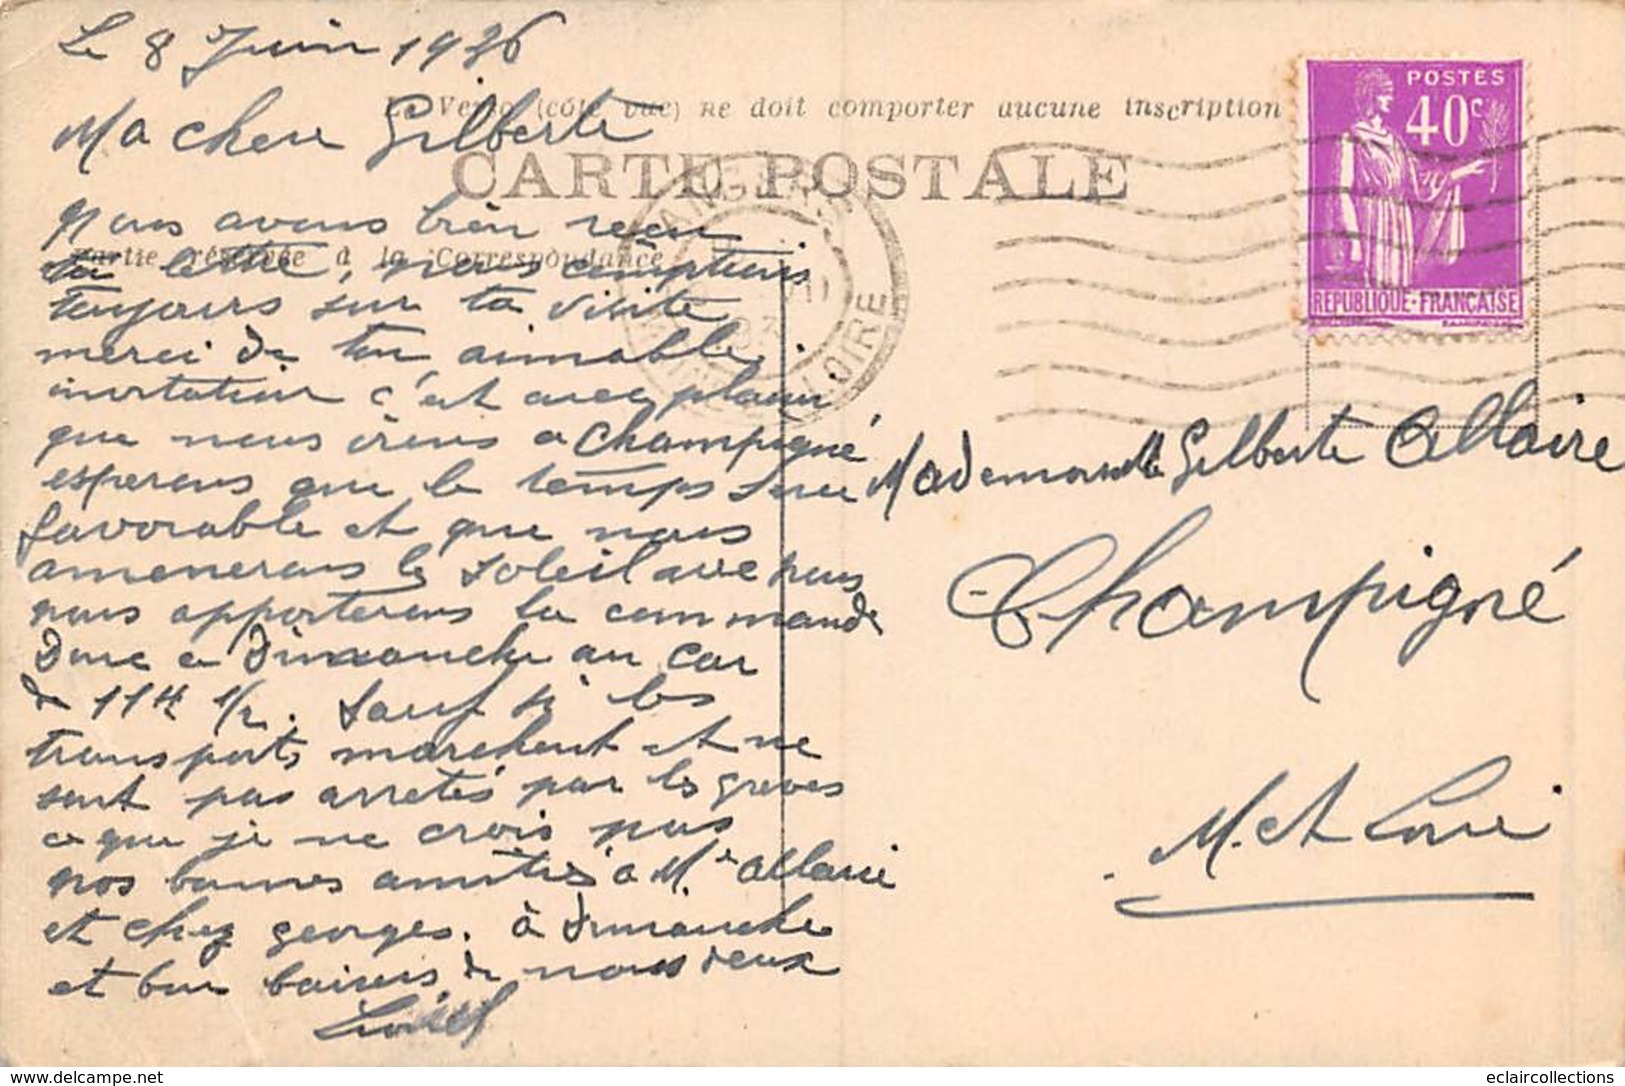 Le 8 Juin 1936
Le Verso (côté vue) ne doit comporter aucune inscription
Ma chere Gilberte
CARTE POSTALE
nous avons bien reçu
Partie réservée à la Correspondance
ta lettre, nous comptions
toujours sur ta visite
merci de ton aimable
invitation c'est avec plaisir
que nous irons a Champigné
esperons que le temps sera
favorable et que nous
amenerons le soleil avec nous
nous apporterons la commande
Donc a Dimanche au car
de 11H 1/2. Sauf si les
transports marchent et ne
sont pas arretés par les greves
ce que je ne crois pas
nos bonnes amitiés à Me Allaire
et chez georges. à Dimanche
et bon baisers de nous deux
POSTES
40c
REPUBLIQUE·FRANÇAISE
ANGERS
MAINE ET LOIRE
Mademoiselle Gilberte Allaire
Champigné
M. et Loire
delcampe.net
eclaircollections